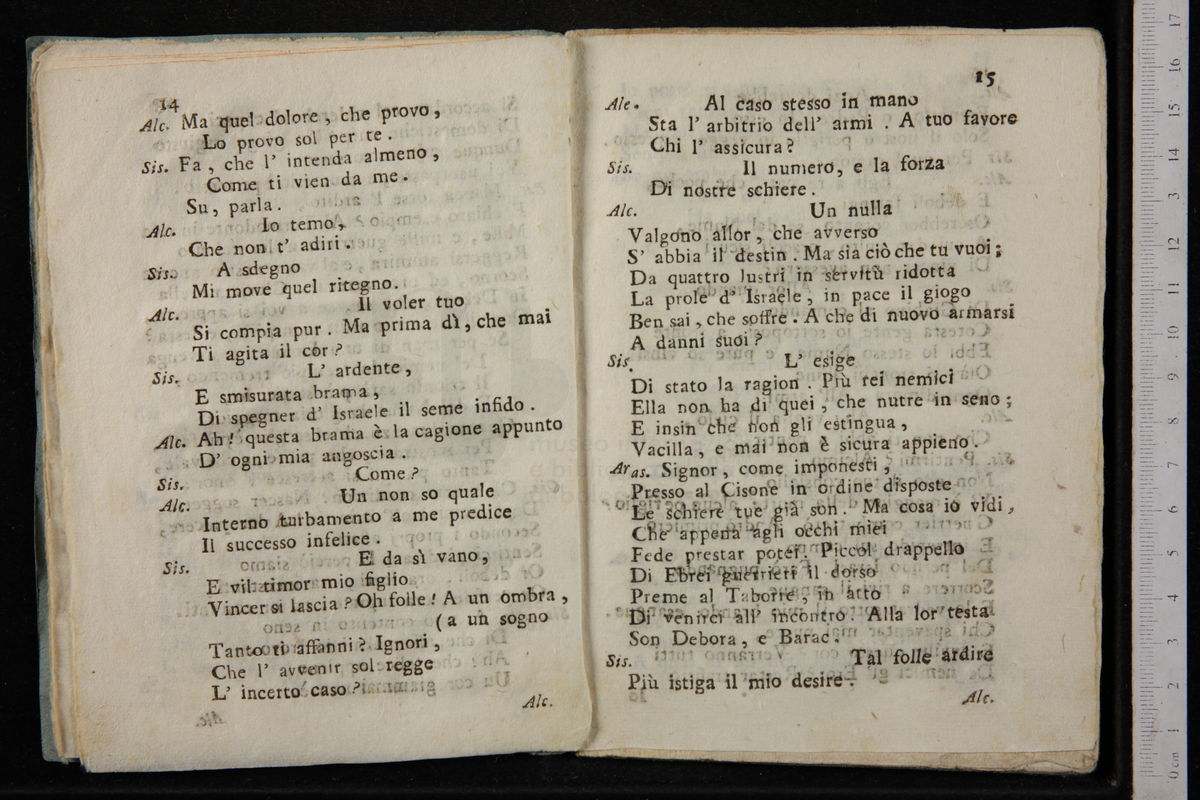 14
Alc. Ma quel dolore, che provo,
Lo provo sol per te.
Sis. Fa, che l' intenda almeno,
Come ti vien da me.
Su, parla.
Alc. Io temo,
Che non t' adiri.
Sis. A sdegno
Mi move quel ritegno.
Alc. Il voler tuo
Si compia pur. Ma prima dì, che mai
Ti agita il cor?
Sis. L' ardente,
E smisurata brama,
Di spegner d' Israele il seme infido.
Alc. Ah! questa brama è la cagione appunto
D' ogni mia angoscia.
Sis. Come?
Alc. Un non so quale
Interno turbamento a me predice
Il successo infelice.
Sis. E da sì vano,
E vil timor mio figlio
Vincer si lascia? Oh folle! A un ombra,
(a un sogno
Tanto ti affanni? Ignori,
Che l' avvenir sol regge
L' incerto caso?
Alc.
15
Ale. Al caso stesso in mano
Sta l' arbitrio dell' armi. A tuo favore
Chi l' assicura?
Sis. Il numero, e la forza
Di nostre schiere.
Alc. Un nulla
Valgono allor, che avverso
S' abbia il destin. Ma sia ciò che tu vuoi;
Da quattro lustri in servitù ridotta
La prole d' Israele, in pace il giogo
Ben sai, che soffre. A che di nuovo armarsi
A danni suoi?
Sis. L' esige
Di stato la ragion. Più rei nemici
Ella non ha di quei, che nutre in seno;
E insin che non gli estingua,
Vacilla, e mai non è sicura appieno.
Aras. Signor, come imponesti,
Presso al Cisone in ordine disposte
Le schiere tue già son. Ma cosa io vidi,
Che appena agli occhi miei
Fede prestar potei. Piccol drappello
Di Ebrei guerrieri il dorso
Preme al Taborre, in atto
Di venirci all' incontro. Alla lor testa
Son Debora, e Barac.
Sis. Tal folle ardire
Più istiga il mio desire.
Alc.